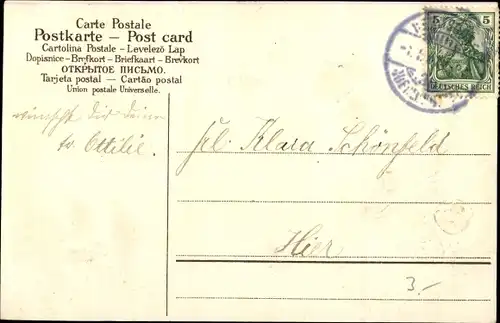 Carte Postale
Postkarte — Post card
Cartolina Postale – Levelező Lap
Dopisnice – Brefkort – Briefkaart – Brevkort
ОТКРЫТОЕ ПИСЬМО.
Tarjeta postal — Cartão postal
Union postale Universelle.
5 5
DEUTSCHES REICH
wünscht Dir Deine
tr. Ottilie.
Frl. Klara Schönfeld
Hier
3.-